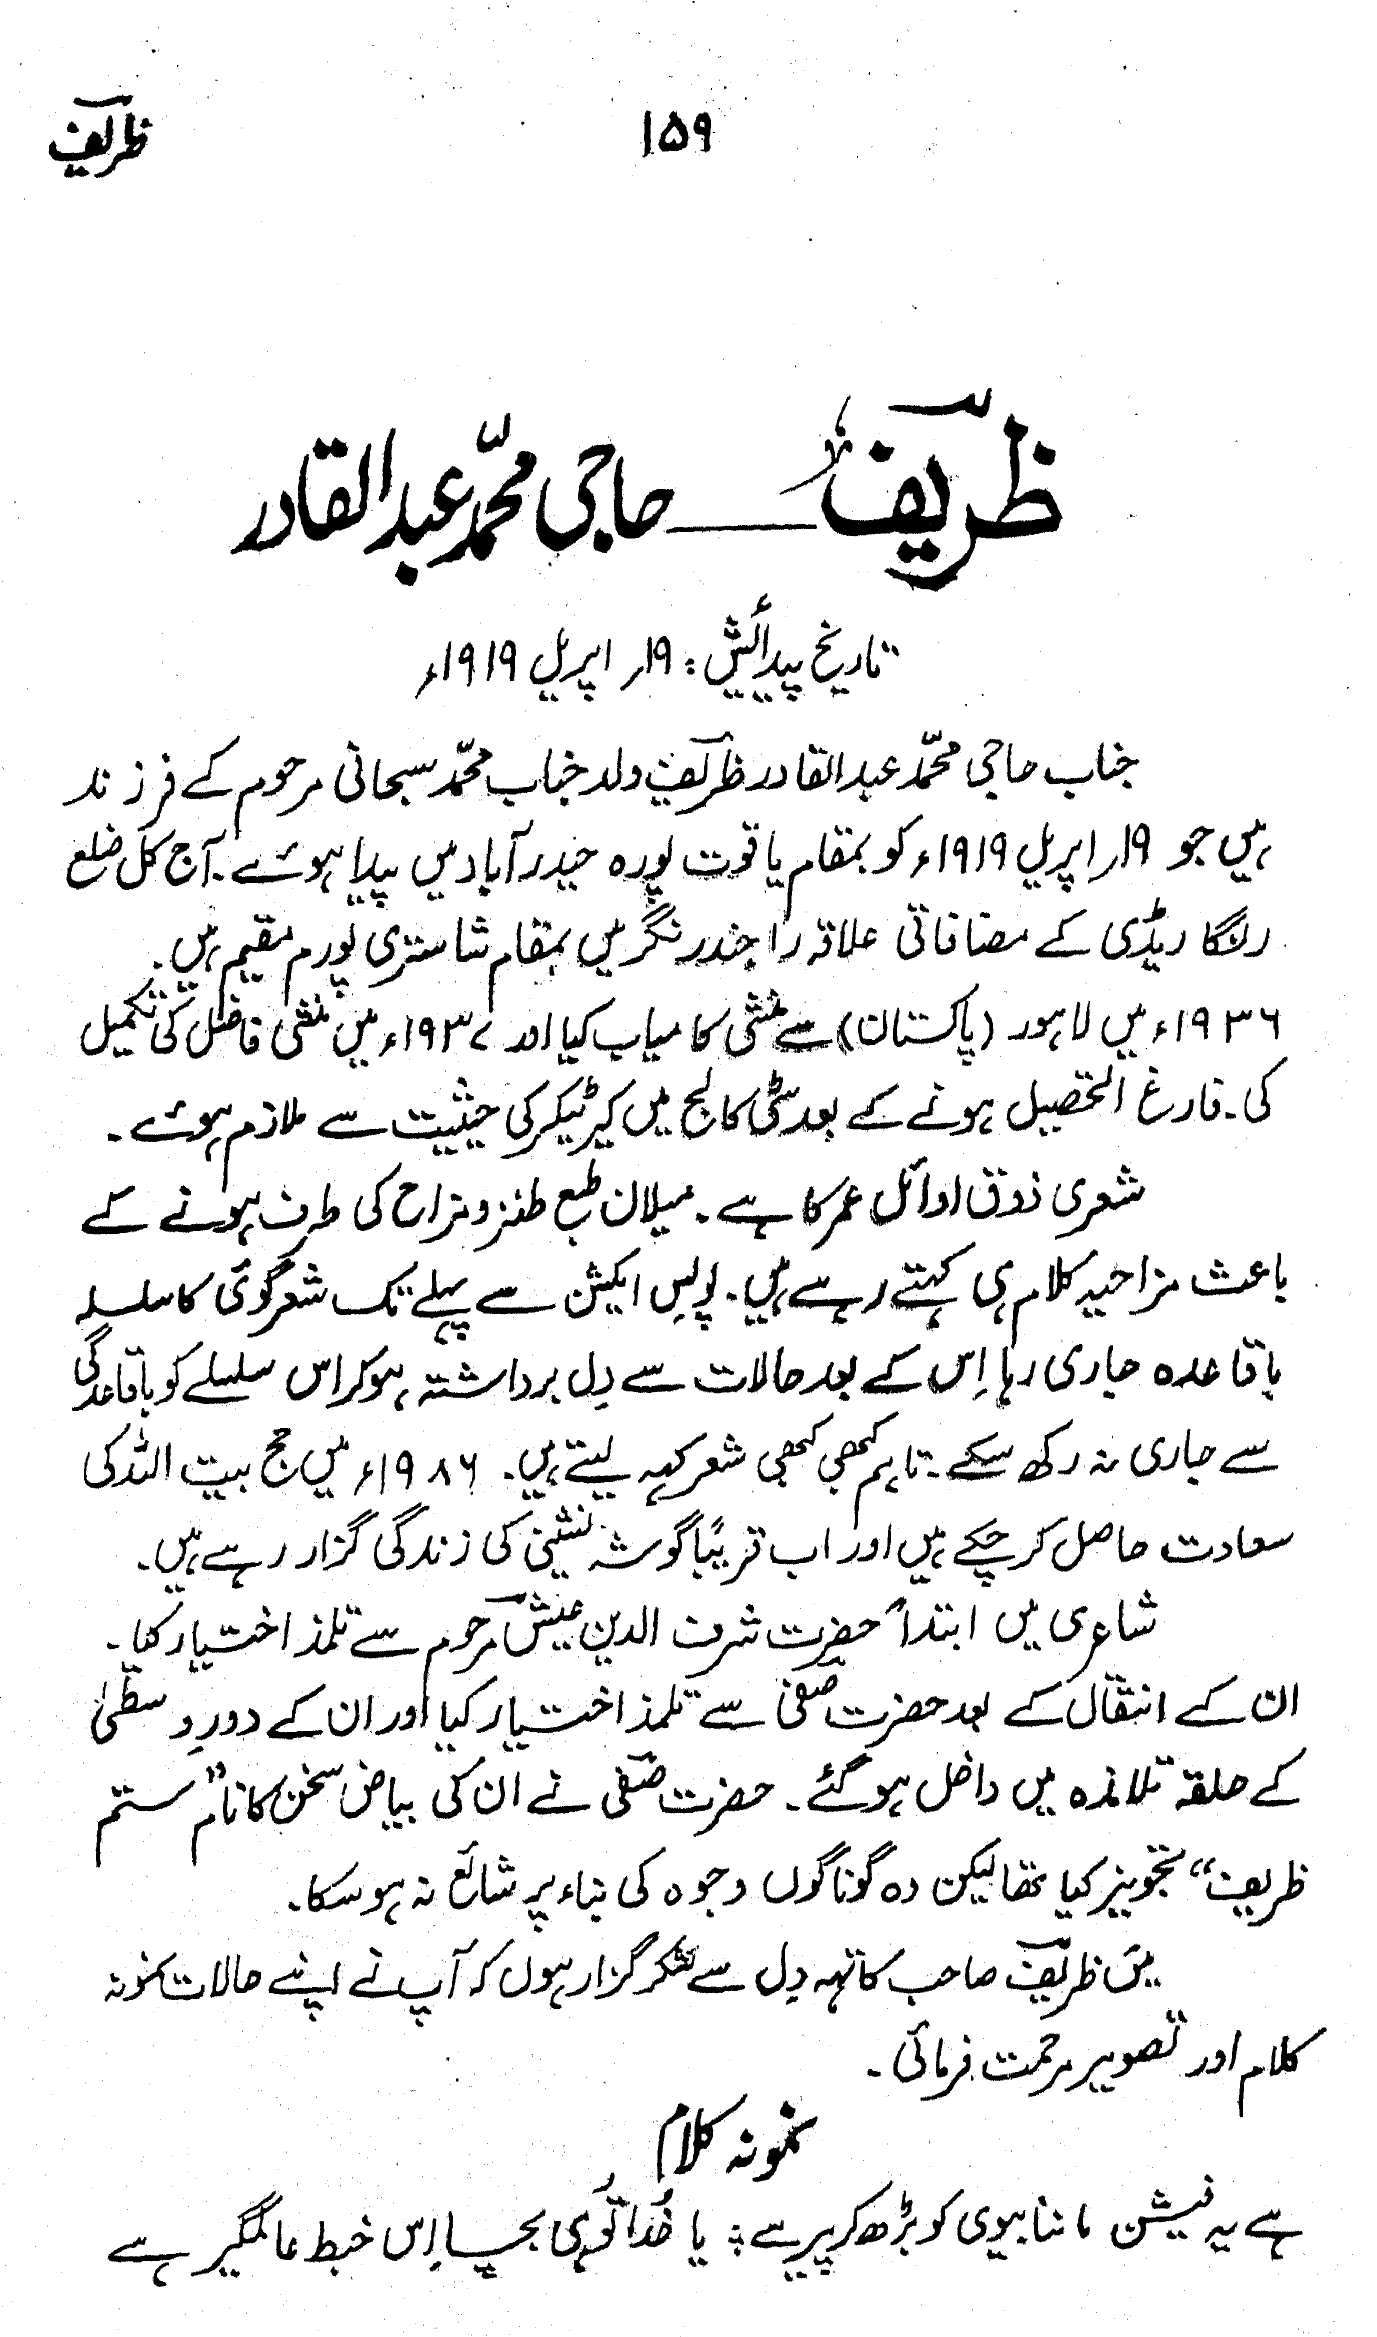 ۱۵۹
ظریف
ظریف ــــ حاجی محمّد عبدالقادر
تاریخ پیدائش : ۱۹؍ اپریل ۱۹۱۹ء
جناب حاجی محمّد عبدالقادر ظریف ولد جناب محمّد سبحانی مرحوم کے فرزند
ہیں جو ۱۹؍ اپریل ۱۹۱۹ء کو بمقام یاقوت پورہ حیدرآباد میں پیدا ہوئے۔ آج کل ضلع
رنگا ریڈی کے مضافاتی علاقہ راجندر نگر میں بمقام شاستری پورم مقیم ہیں۔
۱۹۳۶ء میں لاہور (پاکستان) سے منشی کامیاب کیا اور ۱۹۳۷ء میں منشی فاضل کی تکمیل
کی۔ فارغ التحصیل ہونے کے بعد سٹی کالج میں کیرٹیکر کی حیثیت سے ملازم ہوئے۔
شعری ذوق اوائل عمر کا ہے۔ میلان طبع طنز و مزاح کی طرف ہونے کے
باعث مزاحیہ کلام ہی کہتے رہے ہیں۔ پولیس ایکشن سے پہلے تک شعر گوئی کا سلسلہ
باقاعدہ جاری رہا اِس کے بعد حالات سے دِل برداشتہ ہو کر اس سلسلے کو باقاعدگی
سے جاری نہ رکھ سکے۔ تاہم کبھی کبھی شعر کہہ لیتے ہیں۔ ۱۹۸۶ء میں حج بیت اللہ کی
سعادت حاصل کر چکے ہیں اور اب قریباً گوشہ نشینی کی زندگی گزار رہے ہیں۔
شاعری میں ابتداً حضرت شرف الدین عیش مرحوم سے تلمذ اختیار کیا۔
ان کے انتقال کے بعد حضرت صفی سے تلمذ اختیار کیا اور ان کے دورِ وسطیٰ
کے حلقہ تلامذہ میں داخل ہو گئے۔ حضرت صفی نے ان کی بیاض سخن کا نام ”ستم
ظریف“ تجویز کیا تھا لیکن وہ گوناگوں وجوہ کی بناء پر شائع نہ ہو سکا۔
میں ظریف صاحب کا تہہ دِل سے شکر گزار ہوں کہ آپ نے اپنے حالات نمونہ
کلام اور تصویر مرحمت فرمائی۔
نمونہ کلام
ہے یہ فیشن ماننا بیوی کو بڑھ کر پیر سے ؞ یا خُدا تُو ہی بچا اِس خبط عالمگیر سے